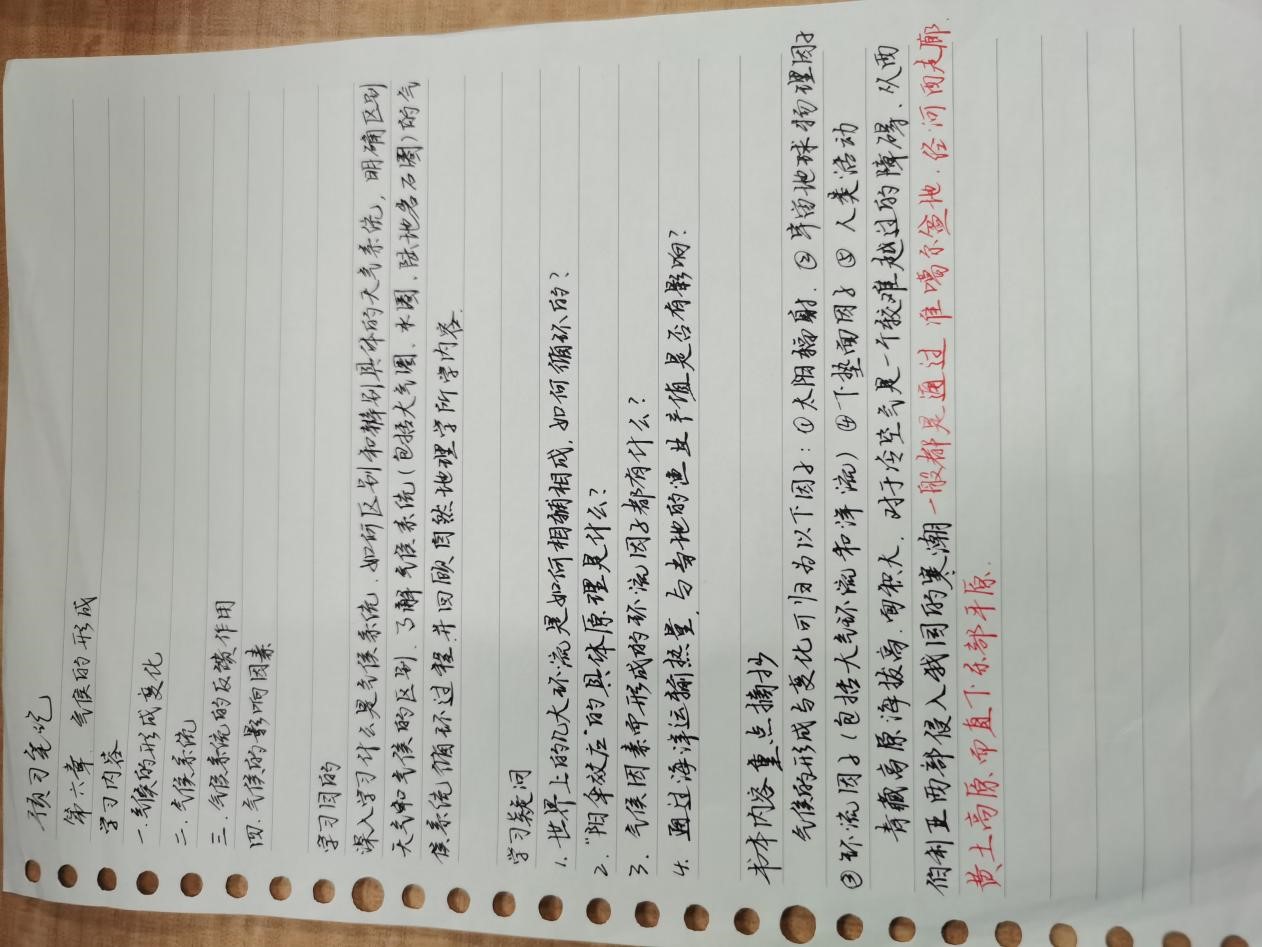 预习笔记
第六章 气候的形成
学习内容
一.气候的形成变化
二.气候系统
三.气候系统的反馈作用
四.气候的影响因素
学习目的
深入学习什么是气候系统.如何区别和辨别具体的天气系统,明确区别
天气和气候的区别.了解气候系统(包括大气圈、水圈、陆地岩石圈)的气
候系统循环过程.并回顾自然地理学所学内容.
学习疑问
1.世界上的几大环流是如何相辅相成,如何循环的?
2."阳伞效应"的具体原理是什么?
3.气候因素中形成的环流因子都有什么?
4.通过海洋运输热量,与当地的渔业产值是否有影响?
书本内容重点摘抄
气候的形成与变化可归为以下因子:①太阳辐射.②宇宙地球物理因子
③环流因子(包括大气环流和洋流)④下垫面因子⑤人类活动
青藏高原海拔高.面积大.对于冷空气是一个较难越过的障碍.从西
伯利亚西部侵入我国的寒潮一般都是通过准噶尔盆地.经河西走廊.
黄土高原.而直下东部平原.